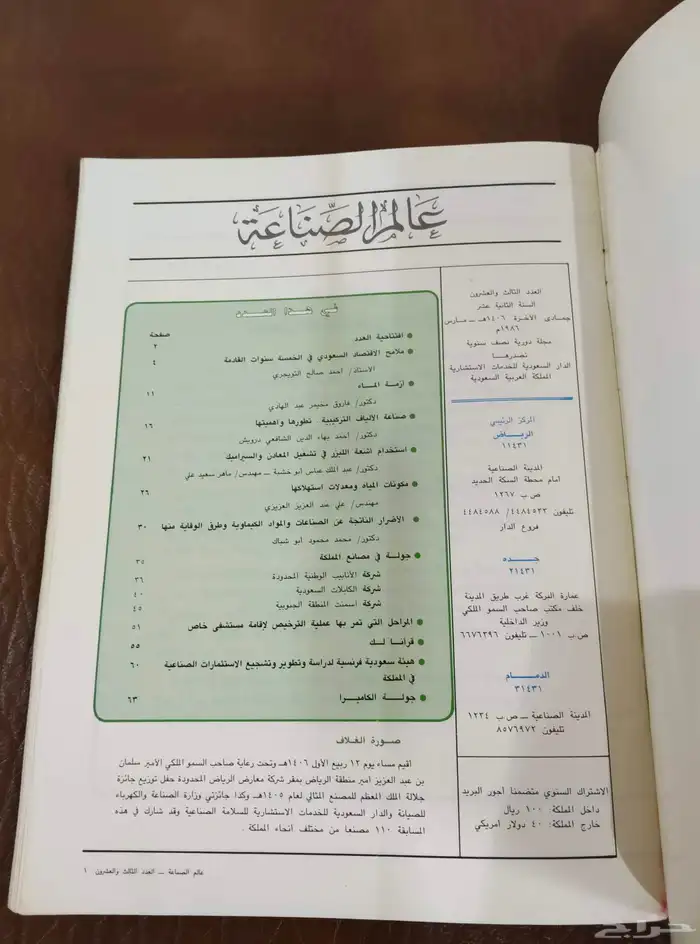 عالم الصناعة
العدد الثالث والعشرون
السنة الثانية عشر
جمادى الآخرة ١٤٠٦هـ ــ مارس
١٩٨٦م
مجلة دورية نصف سنوية
تصدرها
الدار السعودية للخدمات الاستشارية
المملكة العربية السعودية
المركز الرئيسي
الرياض
١١٤٣١
المدينة الصناعية
امام محطة السكة الحديد
ص ب ١٢٦٧
تليفون ٤٤٨٤٥٣٣ / ٤٤٨٤٥٨٨
فروع الدار
جـــده
٢١٤٣١
عمارة البركة غرب طريق المدينة
خلف مكتب صاحب السمو الملكي
وزير الداخلية
ص.ب ١٠٠١ ــ تليفون ٦٦٧٦٣٩٦
الدمـام
٣١٤٣١
المدينة الصناعية ــ ص ب ١٢٣٤
تليفون ٨٥٧٦٩٧٢
الاشتراك السنوي متضمنا أجور البريد
داخل المملكة: ١٠٠ ريال
خارج المملكة: ٤٠ دولار امريكي
في هذا العدد
صفحة
● افتتاحية العدد ٢
● ملامح الاقتصاد السعودي في الخمسة سنوات القادمة ٤
الاستاذ/ احمد صالح التويجري
● ازمة المـاء ١١
دكتور/ فاروق مخيمر عبد الهادي
● صناعة الألياف التركيبية تطورها واهميتها ١٦
دكتور/ احمد بهاء الدين الشافعي درويش
● استخدام اشعة الليزر في تشغيل المعادن والسيراميك ٢١
دكتور/ عبد الملك عباس ابو خشبة ــ مهندس/ ماهر سعيد علي
● مكونات المياه ومعدلات استهلاكها ٢٦
مهندس/ علي حمد العزيز العزيري
● الأضرار الناتجة عن الصناعات والمواد الكيماوية وطرق الوقاية منها ٣٠
دكتور/ محمد محمود أبو شباك
● جولـة في مصانع المملكة ٣٥
شركة الأنابيب الوطنية المحدودة ٣٦
شركة الكابلات السعودية ٤٠
شركة اسمنت المنطقة الجنوبية ٤٥
● المراحل التي تمر بها عملية الترخيص لإقامة مستشفى خاص ٥١
● قرأنـا لـك ٥٥
● هيئة سعودية فرنسية لدراسة وتطوير وتشجيع الاستثمارات الصناعية ٦٠
في المملكة
● جولـــة الكاميـرا ٦٣
صـورة الغـلاف
اقيم مساء يوم ١٢ ربيع الأول ١٤٠٦هـ وتحت رعاية صاحب السمو الملكي الأمير سلمان
بن عبد العزيز امير منطقة الرياض بمقر شركة معارض الرياض المحدودة حفل توزيع جائزة
جلالة الملك المعظم للمصنع المثالي لعام ١٤٠٥هـ وكذا جائزتي وزارة الصناعة والكهرباء
للصيانة والدار السعودية للخدمات الاستشارية للسلامة الصناعية وقد شارك في هذه
المسابقة ١١٠ مصنعا من مختلف انحاء المملكة .
عالم الصناعة ــ العدد الثالث والعشرون ١
حراج